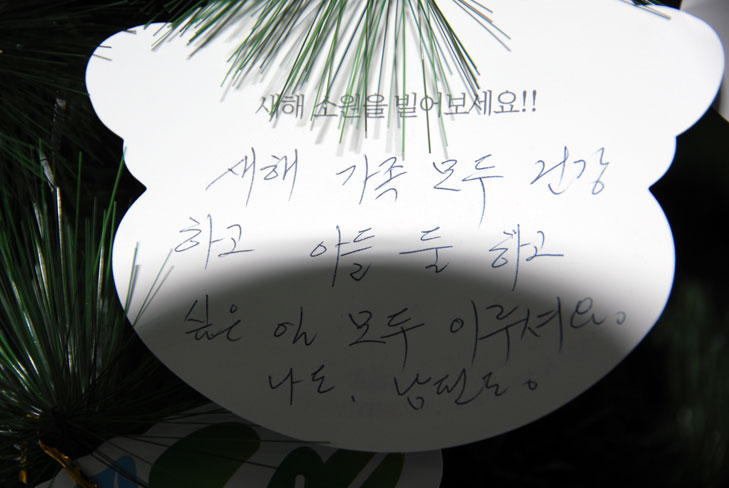 새해 소원을 빌어보세요!!
새해 가족 모두 건강
하고 아들 둘 하고
싶은 일 모두 이루셔요.
나도, 남편도.